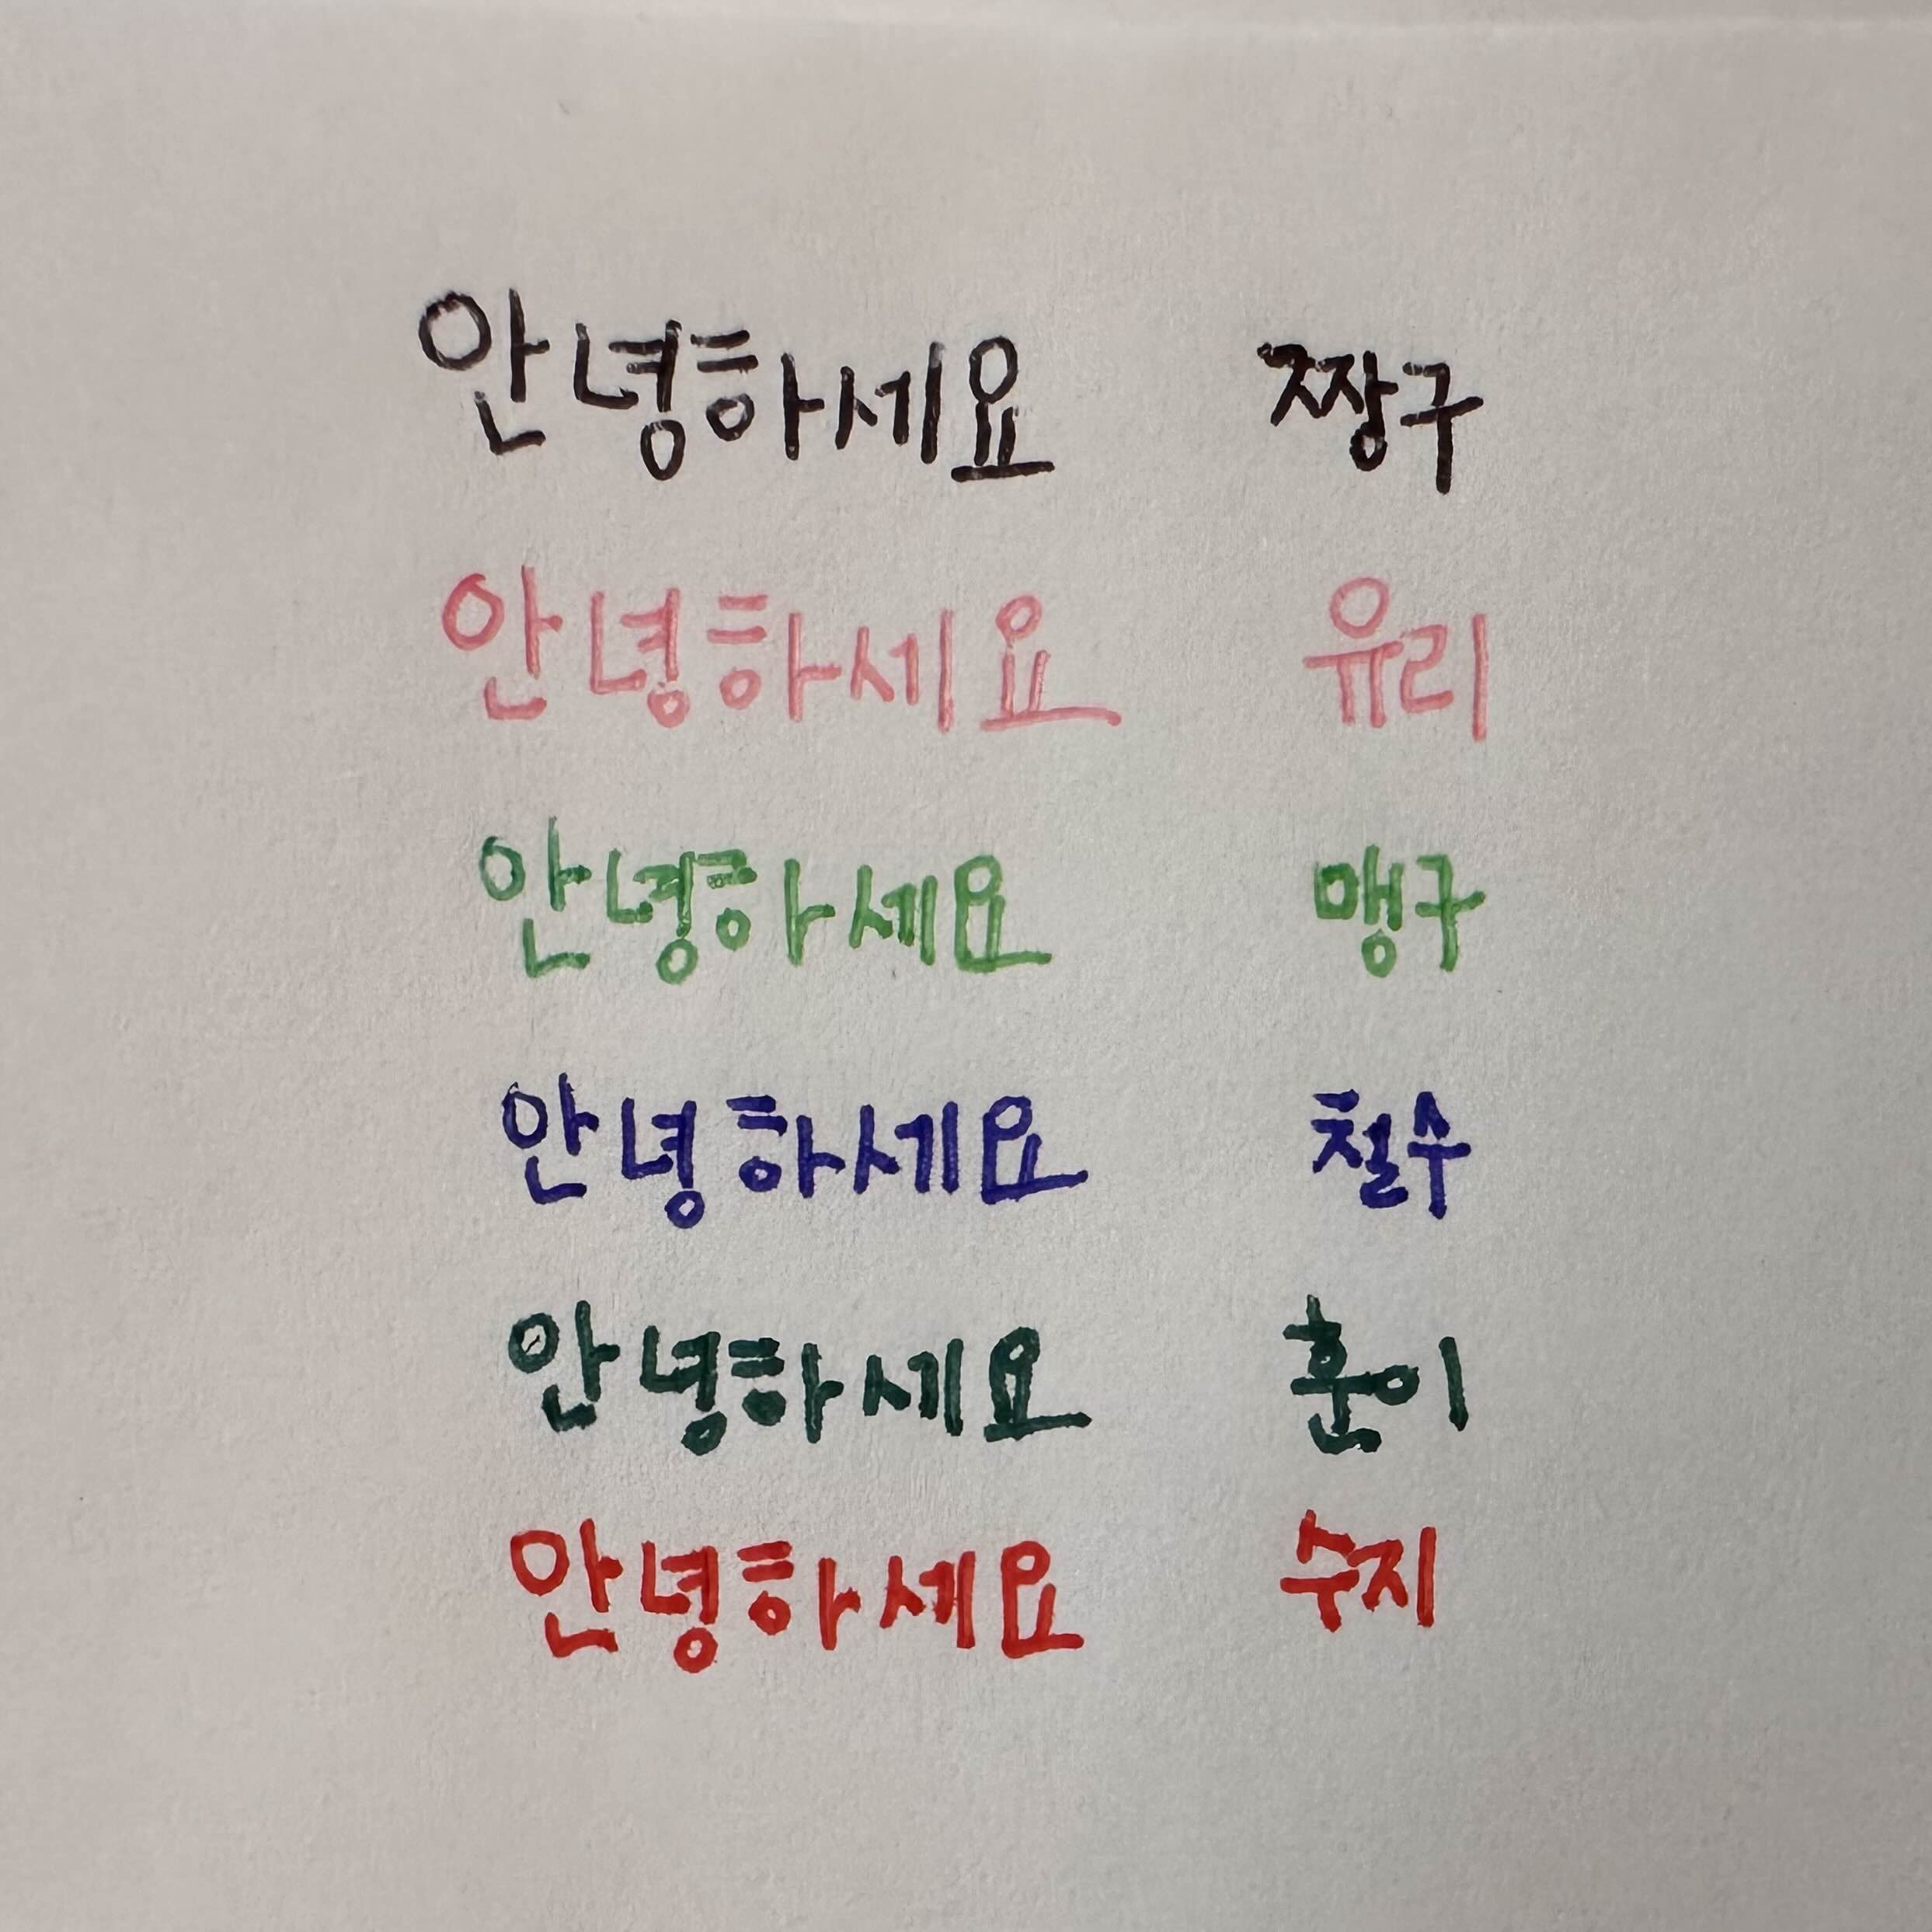 안녕하세요 짱구
안녕하세요 유리
안녕하세요 맹구
안녕하세요 철수
안녕하세요 훈이
안녕하세요 수지